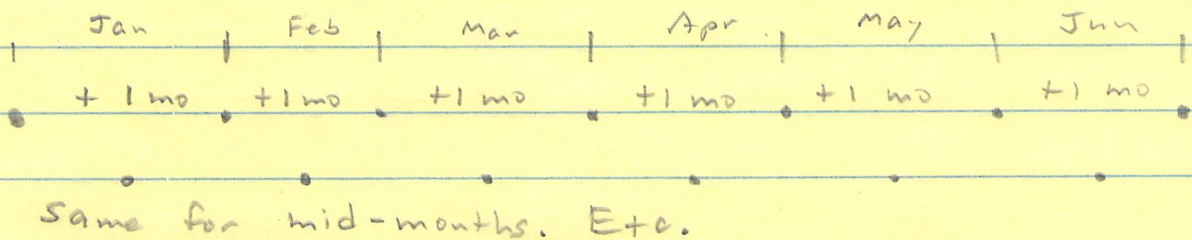 Jan Feb Mar Apr May Jun
+ 1 mo +1 mo +1 mo +1 mo +1 mo +1 mo
Same for mid-months. Etc.